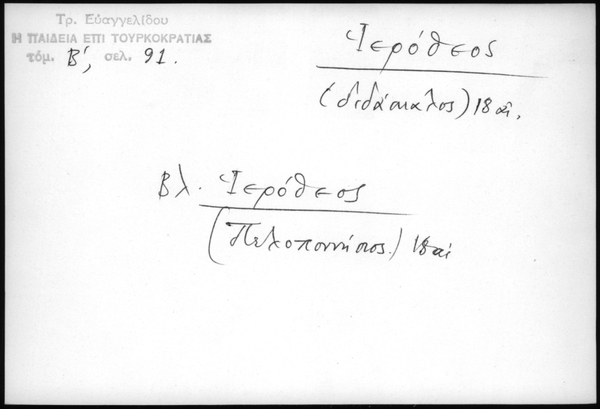 Τρ. Εὐαγγελίδου
Η ΠΑΙΔΕΙΑ ΕΠΙ ΤΟΥΡΚΟΚΡΑΤΙΑΣ
τόμ. Β', σελ. 91.
Ἱερόθεος
(διδάσκαλος) 18 αἰ.
Βλ. Ἱερόθεος
(Πελοποννήσιος.) 18 αἰ